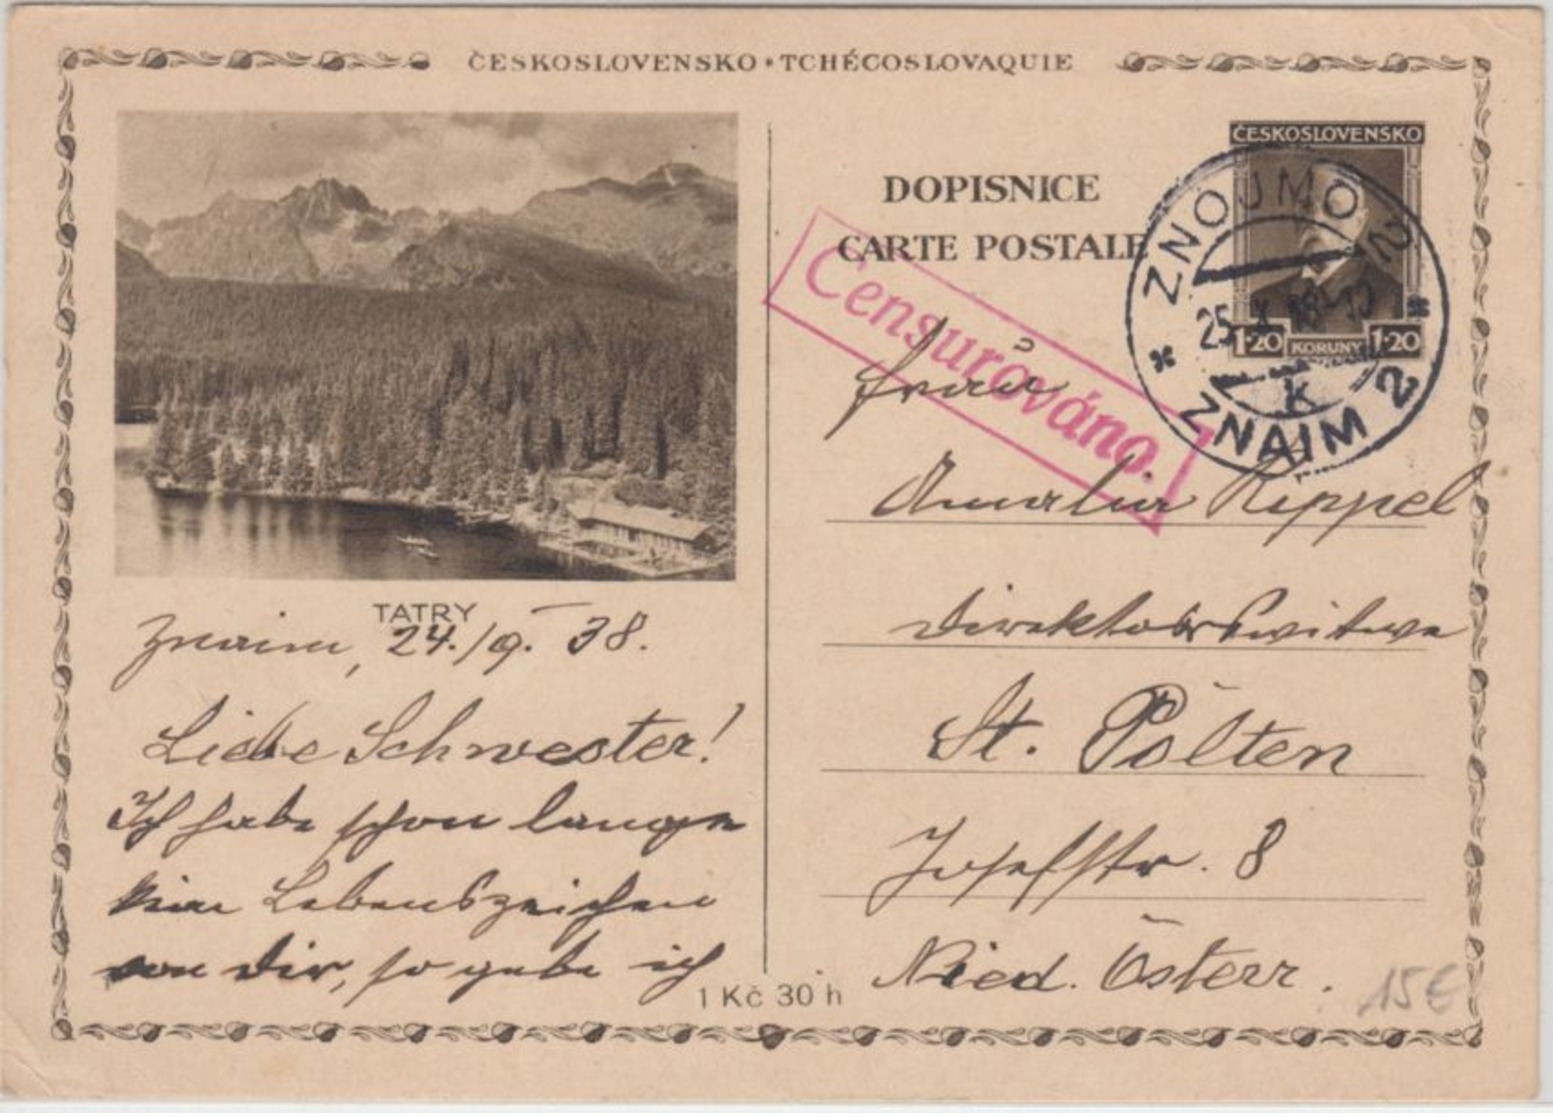 ČESKOSLOVENSKO • TCHÉCOSLOVAQUIE
TATRY
Znaim, 24./9. 38.
Liebe Schwester!
Ich habe schon lange
kein Lebenszeichen
von Dir, so gebe ich
1 Kč 30 h
DOPISNICE
CARTE POSTALE
Censurováno.
ČESKOSLOVENSKO
1·20 KORUNY 1·20
ZNOJMO 2
25
k
ZNAIM 2
Frau
Amalia Rippel
Direktorswitwe
St. Pölten
Josefstr. 8
Nied. Österr.
15€